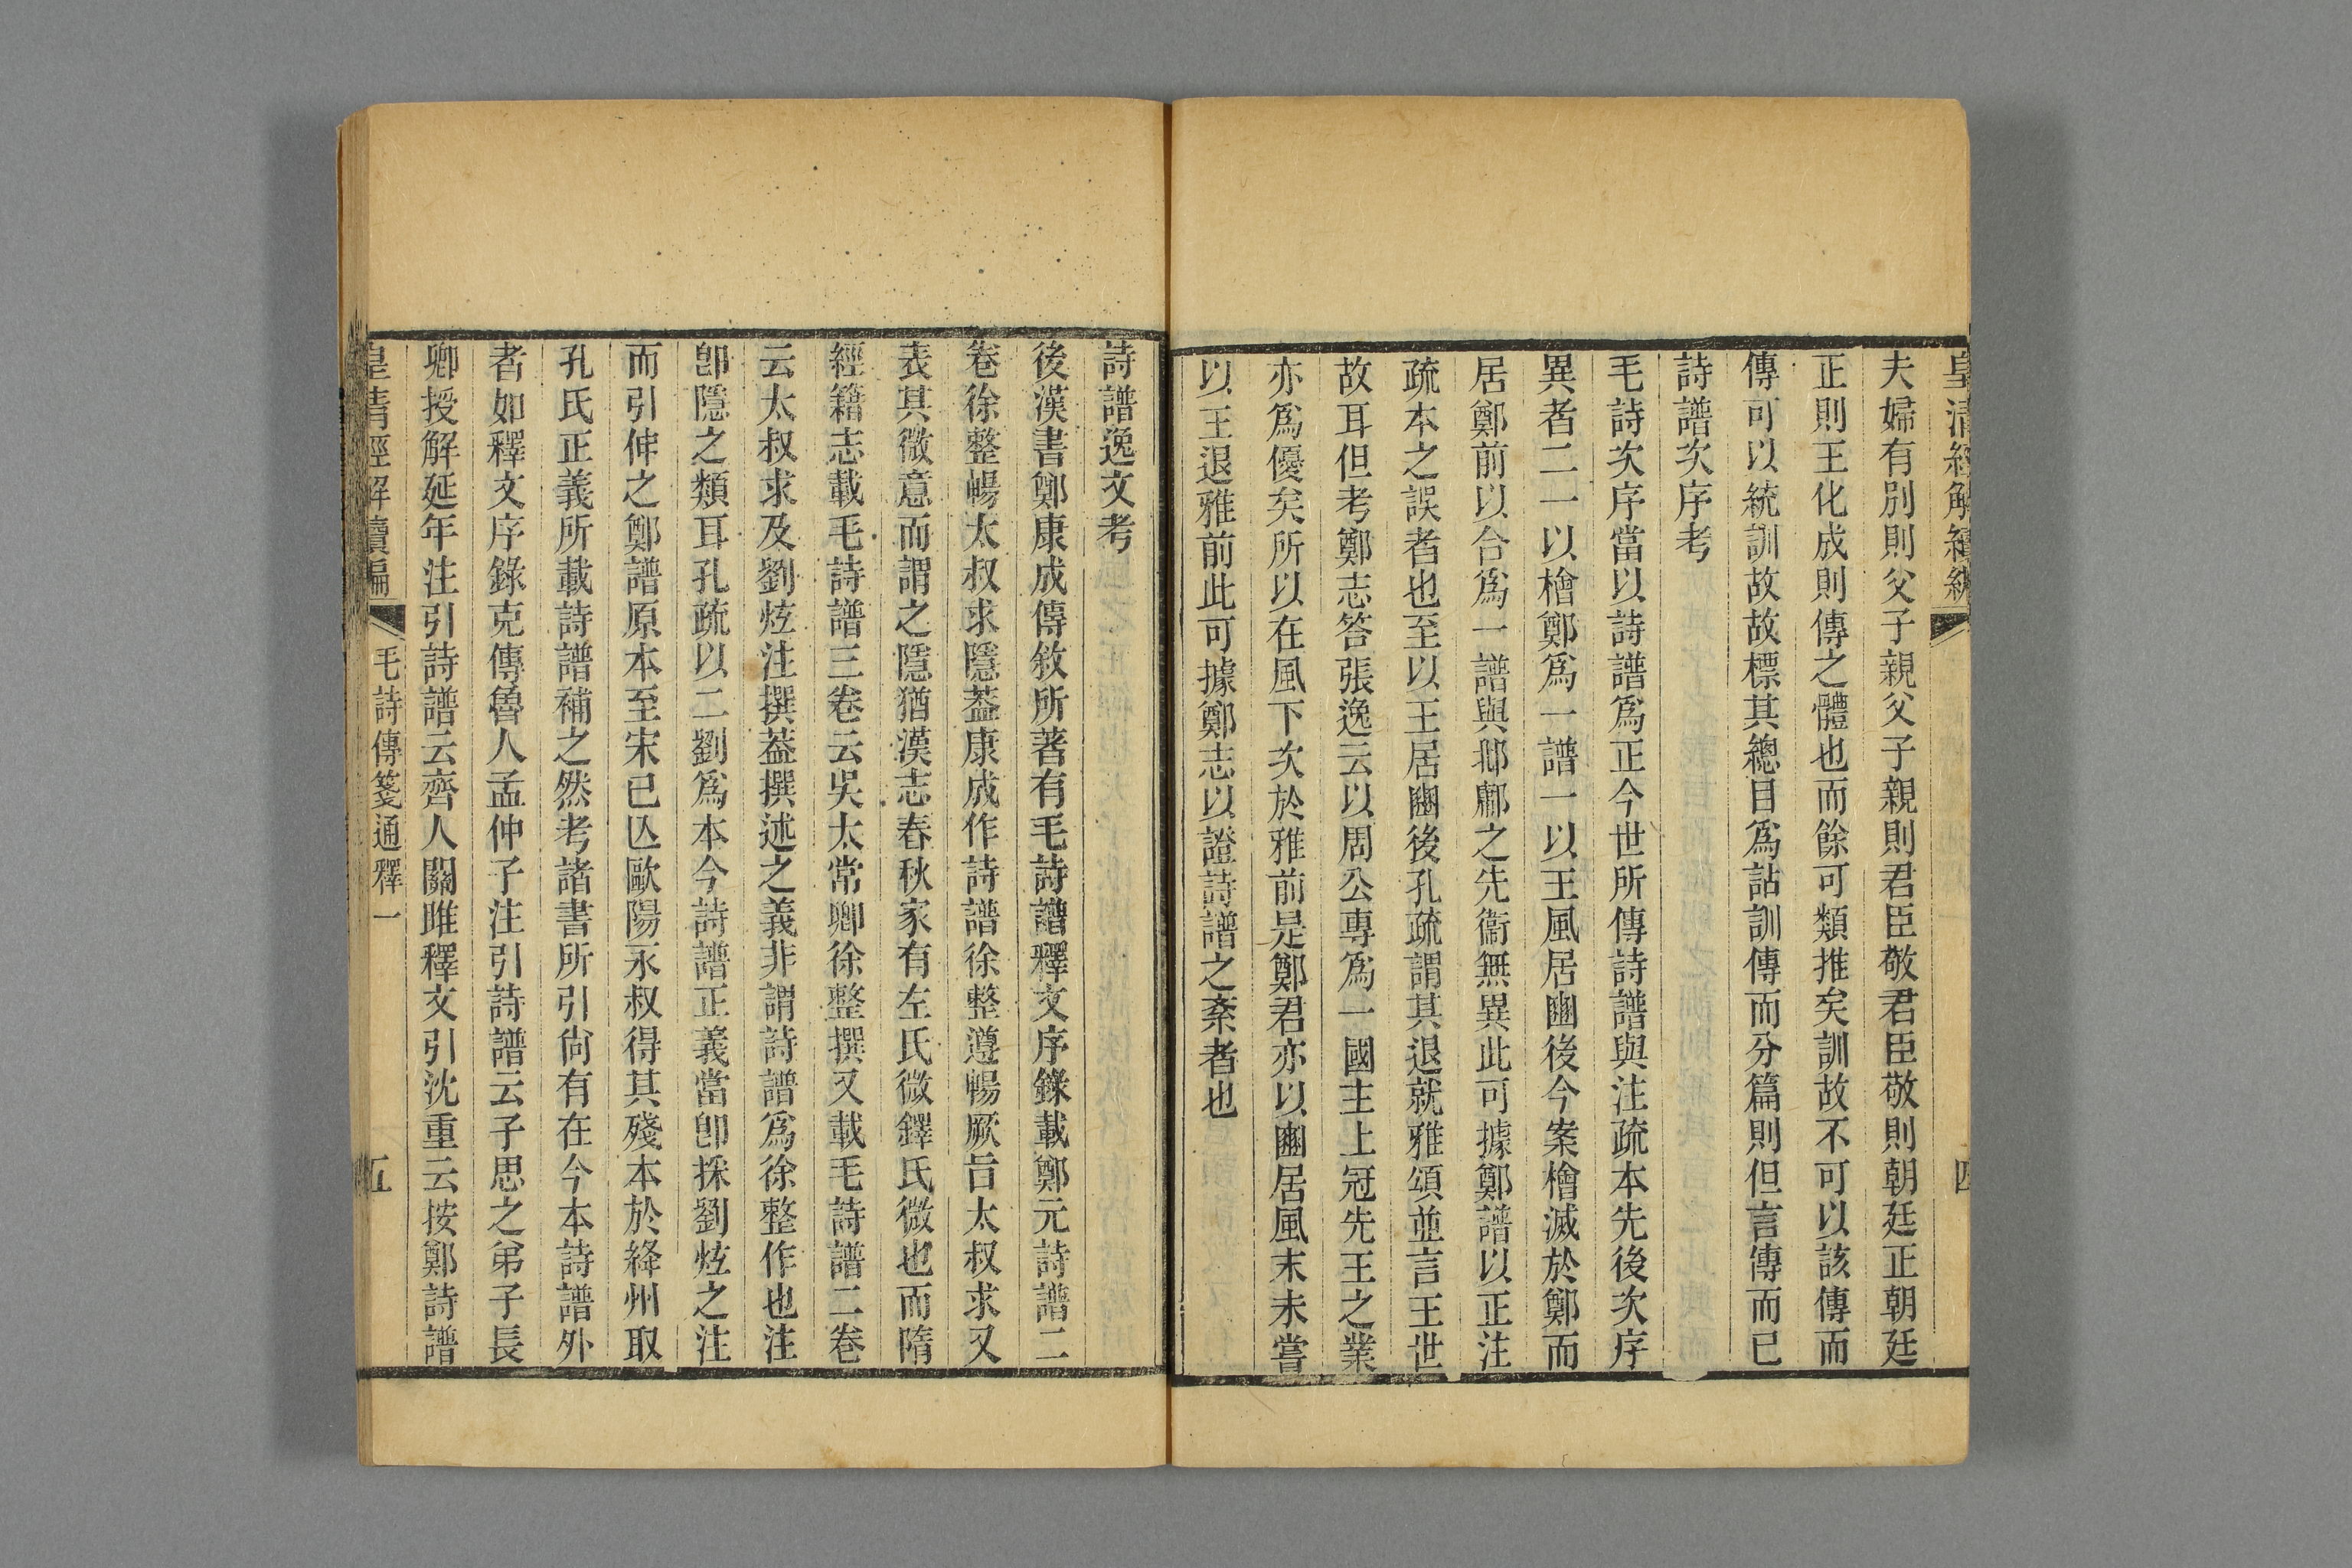 皇清經解續編
四
夫婦有別則父子親父子親則君臣敬君臣敬則朝廷正朝廷
正則王化成則傳之體也而餘可類推矣訓故不可以該傳而
傳可以統訓故故標其總目爲詁訓傳而分篇則但言傳而已
詩譜次序考
毛詩次序當以詩譜爲正今世所傳詩譜與注疏本先後次序
異者二一以檜鄭爲一譜一以王風居豳後今案檜滅於鄭而
居鄭前以合爲一譜與邶鄘之先衞無異此可據鄭譜以正注
疏本之誤者也至以王居豳後孔疏謂其退就雅頌並言王世
故耳但考鄭志答張逸云以周公專爲一國主上冠先王之業
亦爲優矣所以在風下次於雅前是鄭君亦以豳居風末未嘗
以王退雅前此可據鄭志以證詩譜之紊者也
詩譜逸文考
後漢書鄭康成傳敘所著有毛詩譜釋文序錄載鄭元詩譜二
卷徐整暢太叔求隱葢康成作詩譜徐整遵暢厥旨太叔求又
表其微意而謂之隱猶漢志春秋家有左氏微鐸氏微也而隋
經籍志載毛詩譜三卷云吳太常卿徐整撰又載毛詩譜二卷
云太叔求及劉炫注撰葢撰述之義非謂詩譜爲徐整作也注
卽隱之類耳孔疏以二劉爲本今詩譜正義當卽採劉炫之注
而引伸之鄭譜原本至宋已亾歐陽永叔得其殘本於絳州取
孔氏正義所載詩譜補之然考諸書所引尙有在今本詩譜外
者如釋文序錄克傳魯人孟仲子注引詩譜云子思之弟子長
卿授解延年注引詩譜云齊人關雎釋文引沈重云按鄭詩譜
皇清經解續編
毛詩傳箋通釋一
五